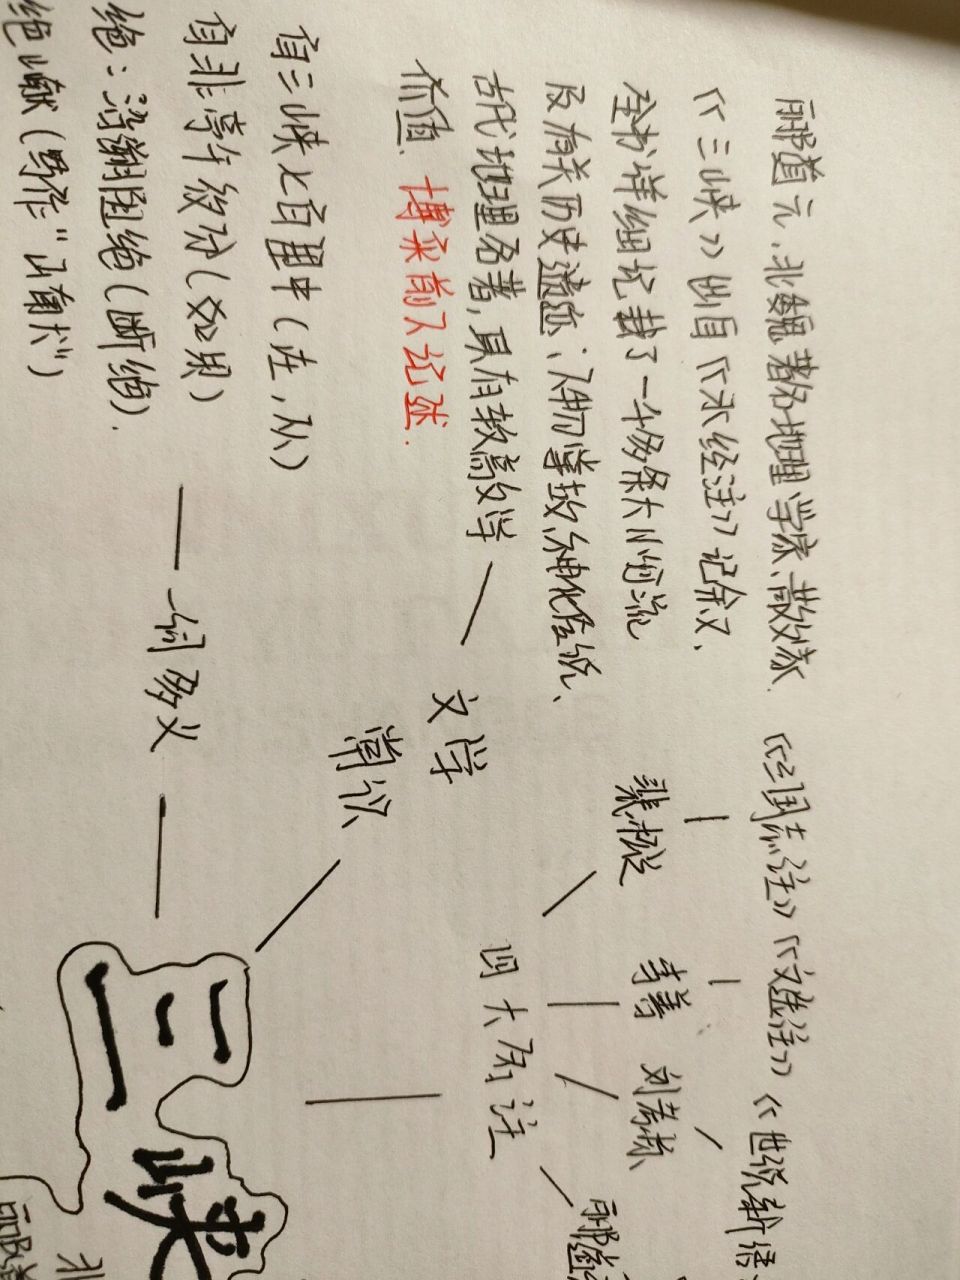 郦道元,北魏著名地理学家、散文家.
《三峡》出自《水经注》记叙文、
全书详细记载了一千多条大小河流
及有关历史遗迹、人物掌故、神化传说、
古代地理名著,具有较高文学
价值. 博采前人记述.
自三峡七百里中(在,从)
自非亭午夜分(如果)
绝:沿溯阻绝(断绝).
绝巘
一词多义
文学
常识
《三国志注》《文选注》《世说新语
裴松 李善 刘孝标
四大名注
郦道
三峡
北
郦道